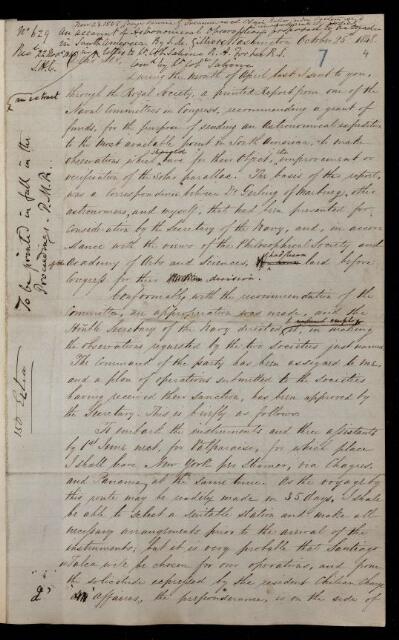 No 629 An account of Astronomical Observations proposed to be made
in South America. By Lt. Gilliss Washington October 25 1848
in a letter to Lt. Col. Sabine R.A. For. Sec. R.S.
Recd 22 Novr 1848
S.H.C.
Comd by Lt Col. Sabine
7
4
My dear Sir,
During the month of April last I sent to you,
through the Royal Society, a printed Report from one of the
Naval Committees in Congress, recommending a grant of
funds, for the purpose of sending an astronomical expedition
to the most available point in South America, to make
observations which have for their object, an improvement or
verification of the Solar parallax. The basis of this report,
was a correspondence between Dr Gerling of Marburg, other
astronomers, and myself, that had been presented for
consideration by the Secretary of the Navy, and, in accor-
dance with the views of the Philosophical Society and
Academy of Arts and Sciences, had been laid before
Congress for their decision.
Conformably with the recommendation of the
Committee, an appropriation was made, and the
Honble Secretary of the Navy directed its employ, in making
the observations requested by the two societies just named.
The command of the party has been assigned to me,
and a plan of operations submitted to the societies
having received their sanction, has been approved by
the Secretary. This is briefly as follows.
To embark the instruments and three assistants
by 1st June next, for Valparaiso, for which place
I shall leave New York per Steamer, via Chagres
and Panama, at the same time. As the voyage by
this route may be readily made in 35 days, I shall
be able to select a suitable station and make all
necessary arrangements prior to the arrival of the
instruments; but it is very probable that Santiago
or Talca will be chosen for our operations, and from
the solicitude expressed by the resident Chilian Chargé
d'affaires, the preponderance, is on the side of
an extract
To be printed in full in the
Proceedings. P.M.R.
150 Extra